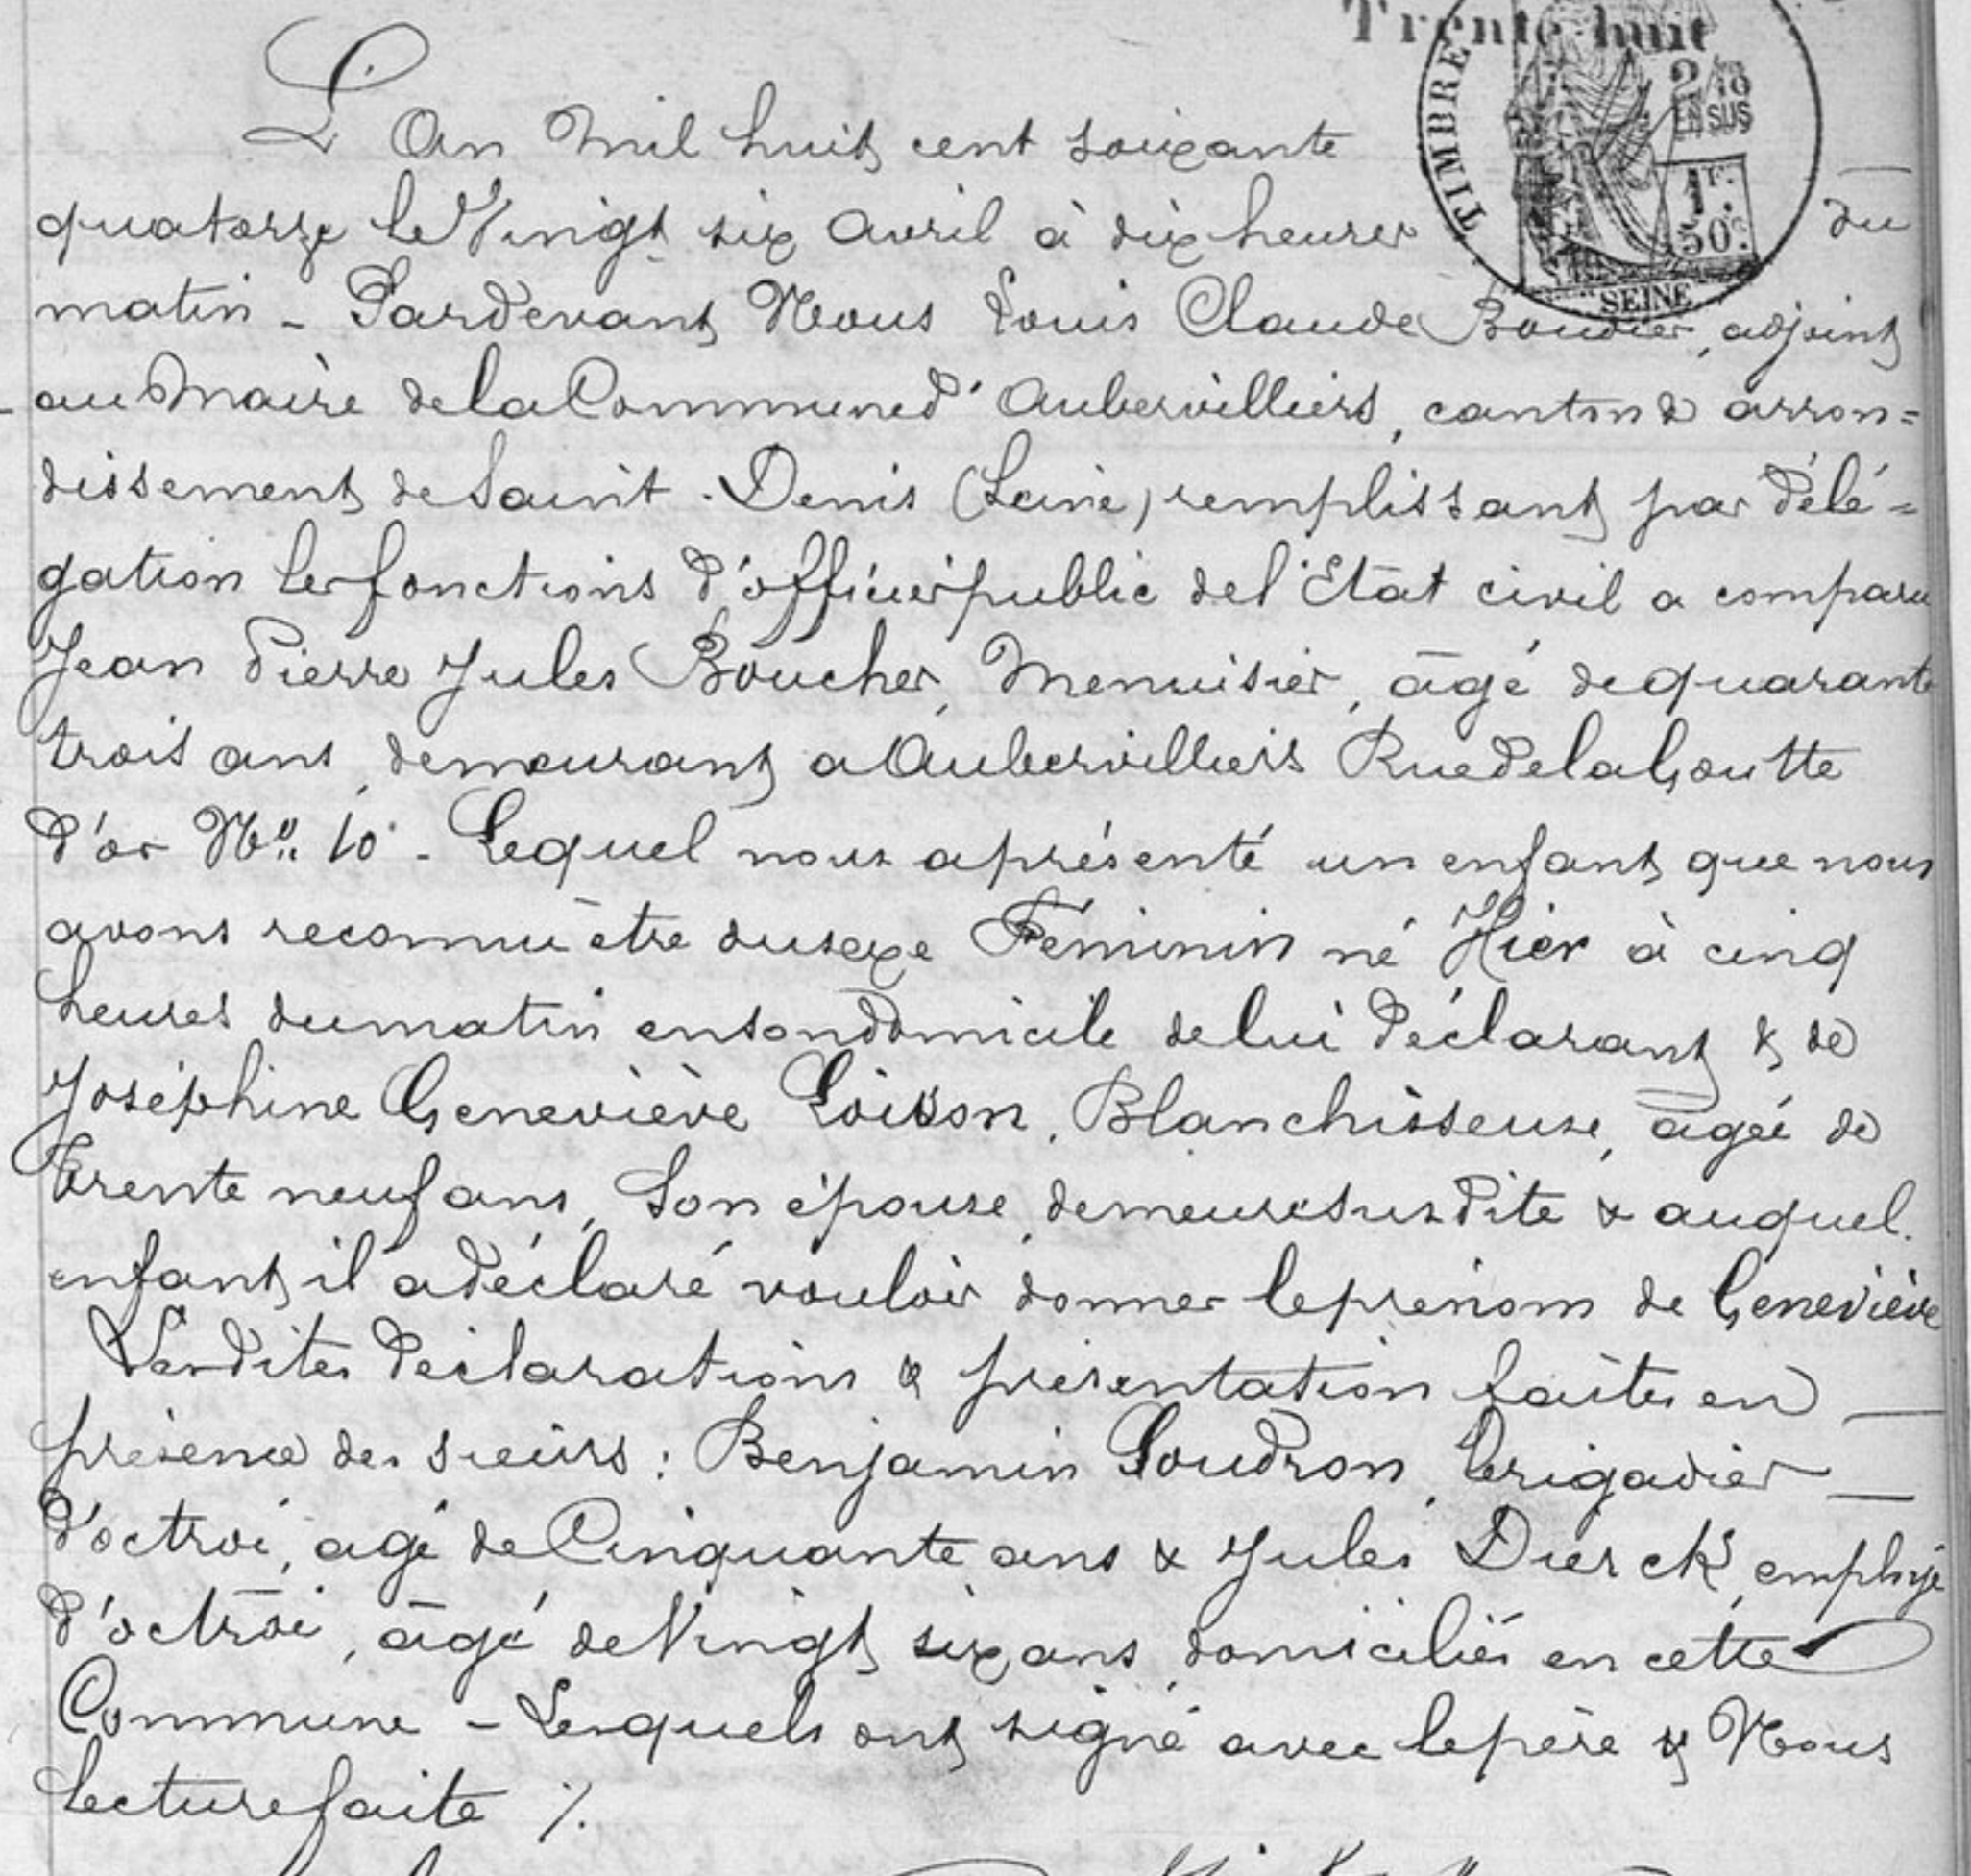 Trente huit
TIMBRE
2/10
EN SUS
1F.
50c.
SEINE
L'An mil huit cent soixante
quatorze le Vingt six Avril à dix heures du
matin - Pardevant Nous Louis Claude Boudier, adjoint
au Maire de la Commune d'Aubervilliers, canton & arron=
dissement de Saint-Denis (Seine) remplissant par délé=
gation les fonctions d'officier public de l'Etat civil a comparu
Jean Pierre Jules Boucher, Menuisier, âgé de quarante
trois ans, demeurant a Aubervilliers Rue de la Goutte
d'or No. 10 - Lequel nous a présenté un enfant que nous
avons reconnu être du sexe Féminin né Hier à cinq
heures du matin en son domicile de lui déclarant & de
Joséphine Geneviève Loison, Blanchisseuse, âgée de
trente neuf ans, Son épouse, demeure susdite & auquel
enfant il a déclaré vouloir donner le prénom de Geneviève
Lesdites déclarations & présentation faites en
présence des sieurs : Benjamin Soudron, brigadier
d'octroi, agé de Cinquante ans & Jules Dierck, employé
d'octroi, âgé de Vingt six ans, domiciliés en cette
Commune - Lesquels ont signé avec le père & Nous
lecture faite ./.